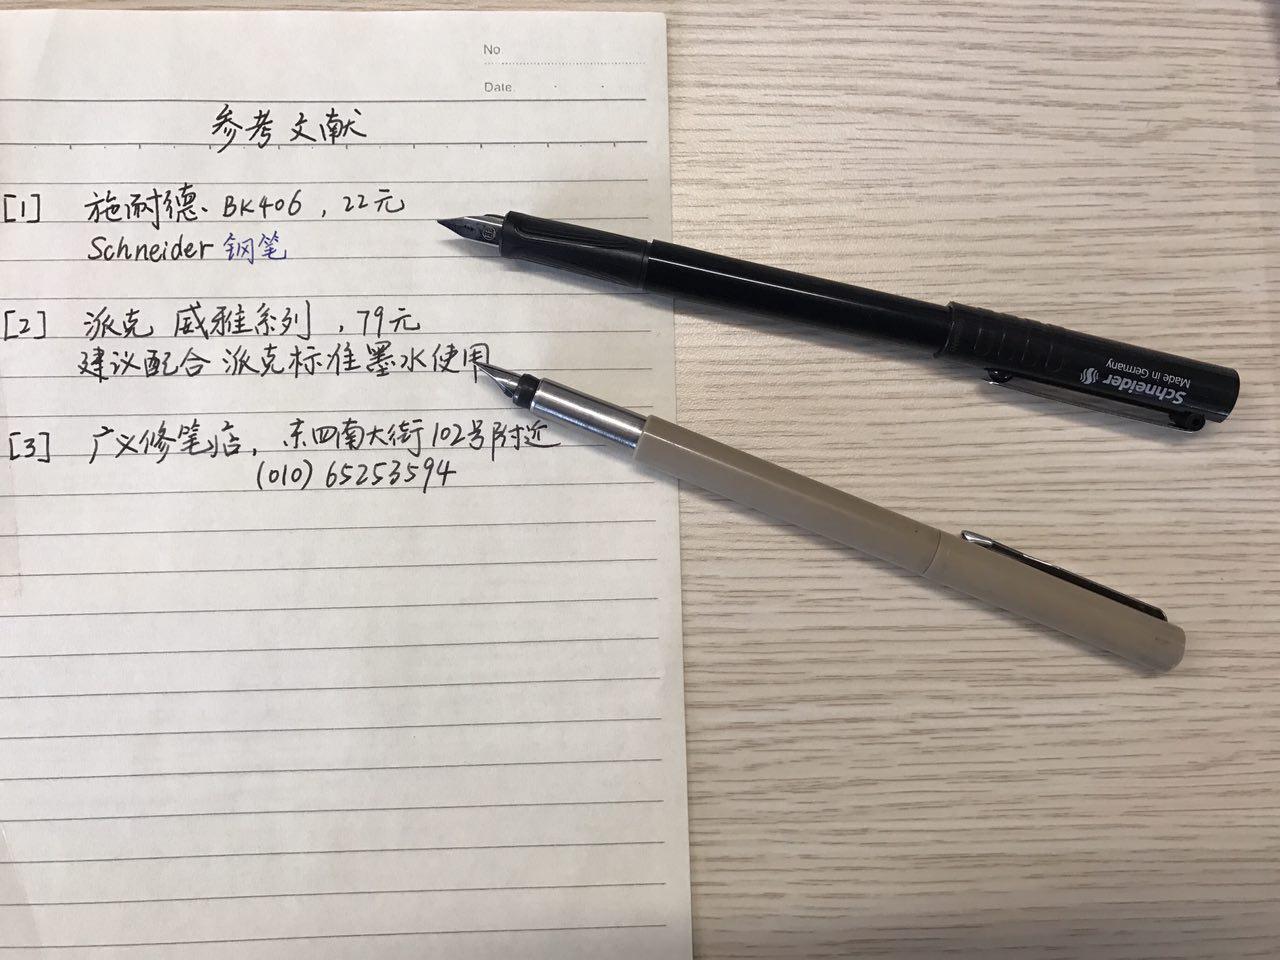 No
Date
参考文献
[1] 施耐德. BK406, 22元
Schneider 钢笔
[2] 派克 威雅系列, 79元
建议配合 派克标准墨水使用
[3] 广义修笔店, 东四南大街102号附近
(010) 65253594
Schneider
Made in Germany